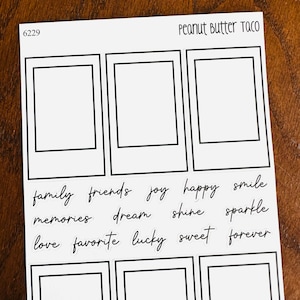 6229 Peanut Butter Taco
family friends joy happy smile
memories dream shine sparkle
love favorite lucky sweet forever